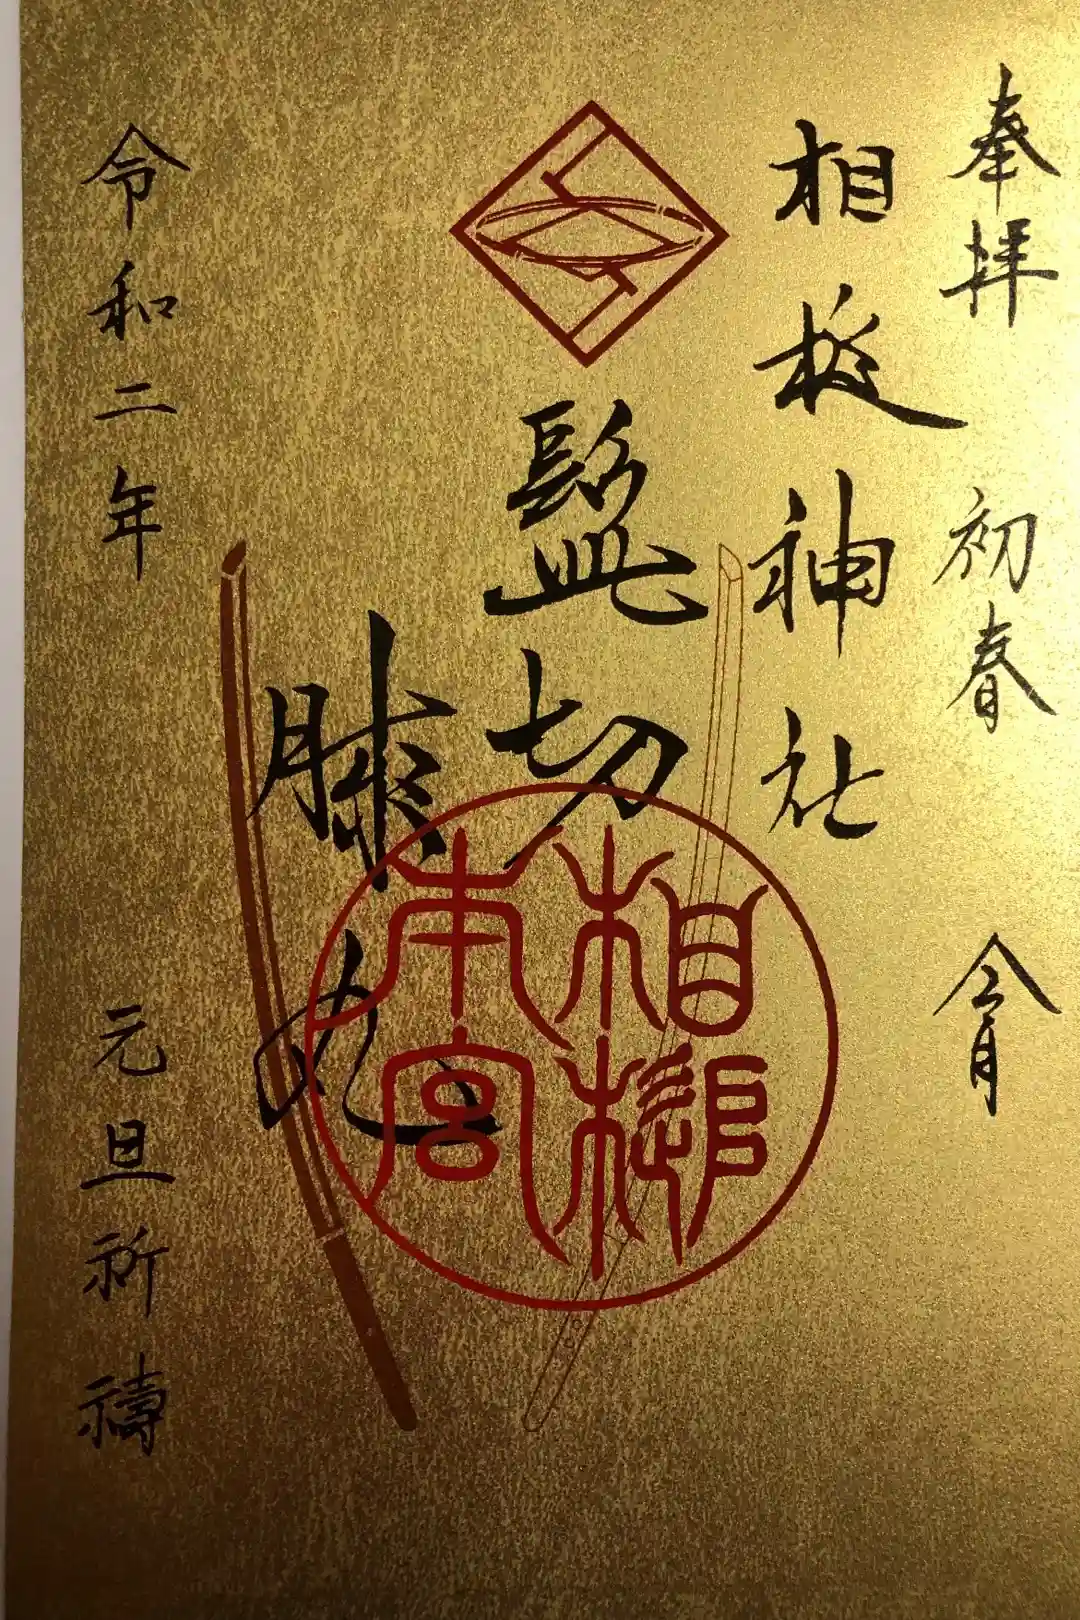 奉拝 初春 令月
相槌神社
髭切
膝丸
令和二年 元旦祈禱
相槌本宮